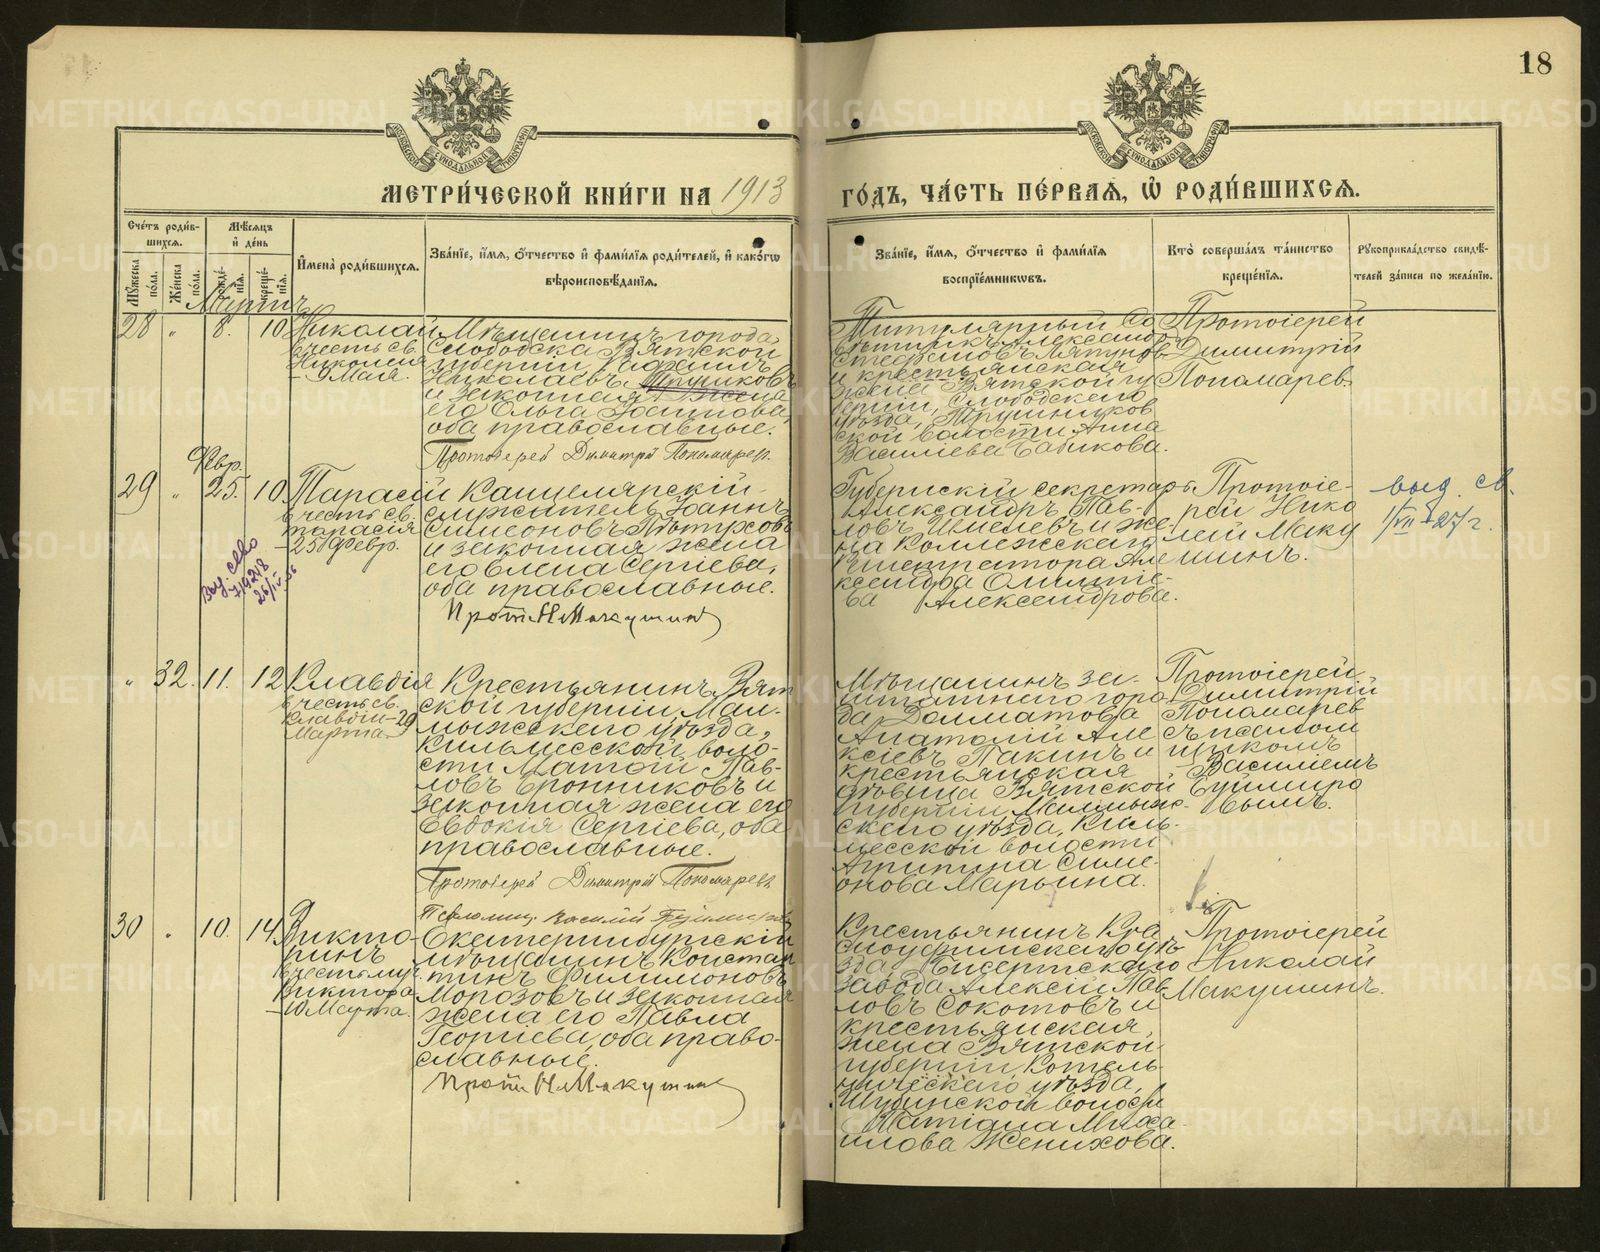 18
МЕТРИ́ЧЕСКОЙ КНИ́ГИ НА 1913
ГО́ДЪ, ЧА́СТЬ ПЕ́РВАЯ, Ѡ҆ РОДИ́ВШИХСЯ.
Сче́тъ роди́вшихся.
Мѣ́сяцъ и҆ де́нь
Му́жеска по́ла.
Же́нска по́ла.
рожде́нїя.
креще́нїя.
И҆мена̀ роди́вшихся.
Зва́нїе, и҆́мя, ѻ҆́тчество и҆ фами́лїя роди́телей, и҆ како́гѡ
вѣроисповѣ́данїя.
Зва́нїе, и҆́мя, ѻ҆́тчество и҆ фами́лїя
воспрїе́мникѡвъ.
Кто̀ соверша́лъ та́инство
креще́нїя.
Рꙋкоприкла́дство свидѣ́телей за́писи по жела́нїю.
Мартъ
28 " 8. 10.
Николай
въ честь св.
Николая
– 9 Мая.
Мѣщанинъ города
Слободска Вятской
губерніи
Николаевъ Трушковъ
и законная жена
его Ольга
оба православные.
Протоіерей Димитрій Пономарев.
Титулярный Совѣтникъ Александръ
Стефановъ Ляпуновъ
и крестьянская
жена Вятской губерніи, Слободского
уѣзда, Трушниковской волости Анна
Васильева Бабикова.
Протоіерей
Димитрій
Пономарев.
Февр.
29 " 25. 10.
Тарасій
въ честь св.
Тарасія
– 25 Февр.
Канцелярскій
служитель Іоаннъ
Симеоновъ Пѣтуховъ
и законная жена
его Елена Сергіева,
оба православные.
Прот. Н Макушин
Губернскій секретарь
Александръ Павловъ Шмелевъ и жена Коллежскаго
Регистратора Александра Олимпіева Александрова.
Протоіерей Николай Макушинъ.
выд. св.
1/VII–27 г.
26/IV–36
" 32. 11. 12
Клавдія
въ честь св.
Клавдіи – 20
Марта.
Крестьянинъ Вятской губерніи Малмыжскаго уѣзда,
Кильмесской волости Матѳій Павловъ Бронниковъ и
законная жена его
Евдокія Сергіева, оба
православные.
Протоіерей Димитрій Пономарев.
Псаломщ. Василій
Мѣщанинъ заштатнаго города Далматова
Анатолій Алексіевъ Пакинъ и
крестьянская
дѣвица Вятской
губерніи Малмыжскаго уѣзда, Кильмесской волости
Агрипина Симеонова Марьина.
Протоіерей
Димитрій
Пономарев
съ псаломщикомъ
Василіемъ
30 " 10. 14.
Викторинъ
въ честь муч.
Виктора
– 10 Марта.
Екатеринбургскій
мѣщанинъ Константинъ Филимоновъ
Морозовъ и законная
жена его Павла
Георгіева, оба православные.
Прот. Н Макушин
Крестьянинъ Красноуфимскаго уѣзда Бисертскаго
завода Алексій Павловъ Сокотовъ и
крестьянская
жена Вятской
губерніи Котельническаго уѣзда,
Шубинской волости
Татіана Михаилова Женихова.
Протоіерей
Николай
Макушинъ.
METRIKI.GASO-URAL.RU